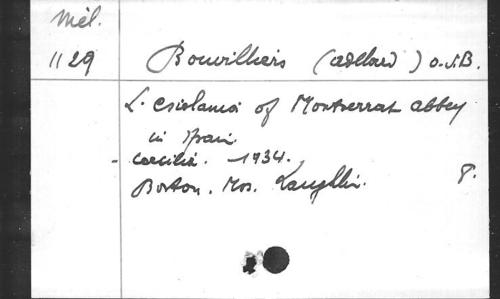 Mél.
1129 Bouvilliers (Adélard) o.S.B.
L'Escolania of Montserrat abbey
in Spain.
- Caecilia. 1934.
Boston. Mcs. Laughlin.
8.